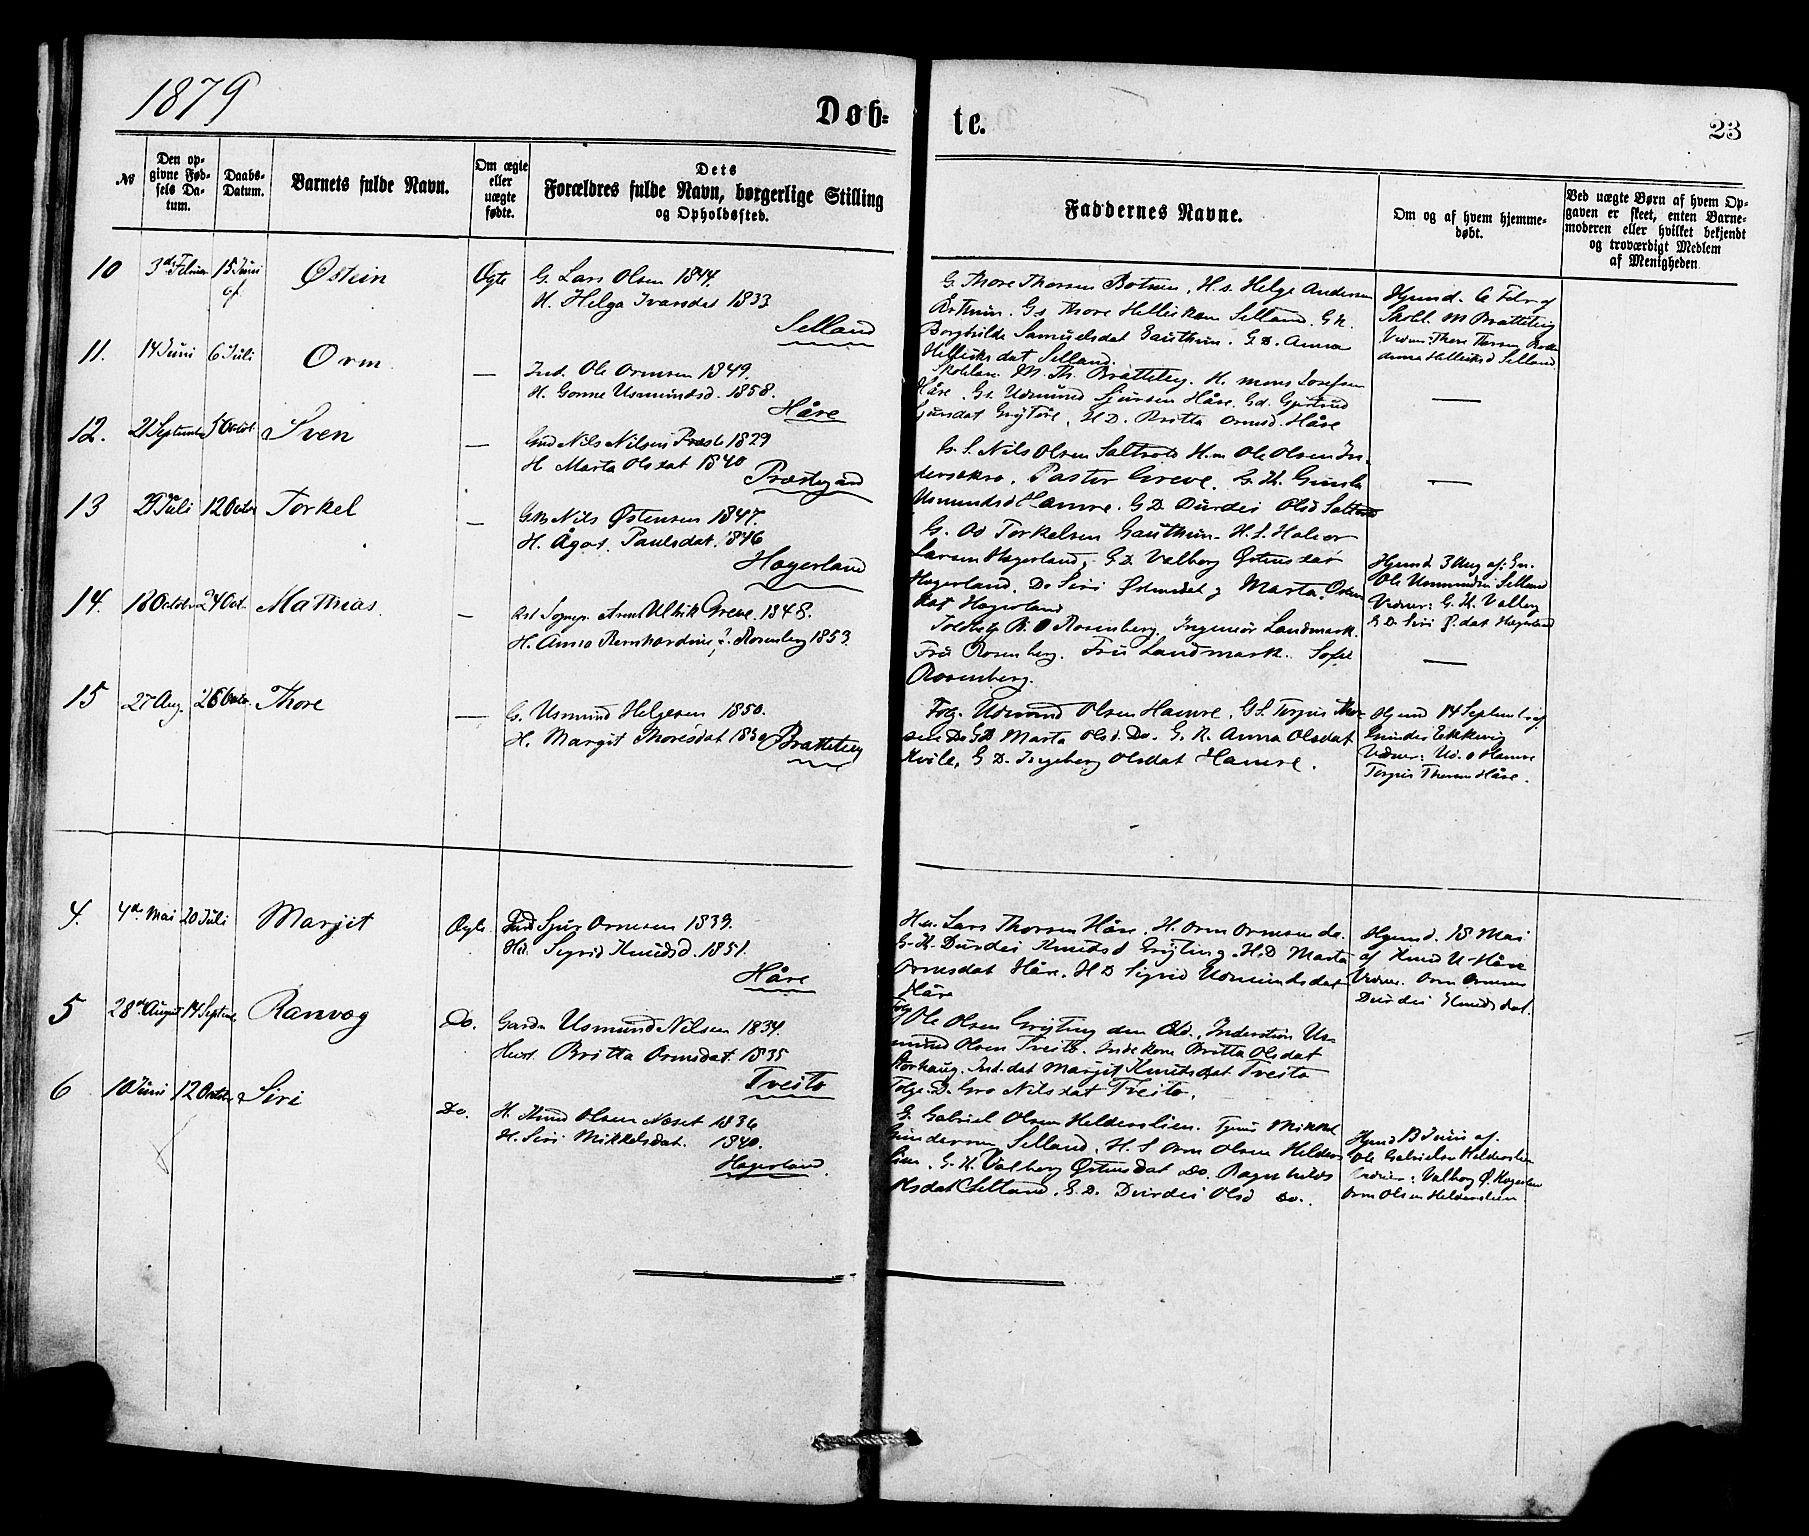 1879
Døb=
te.
23
№
Den op-
givne Fød-
sels Da-
tum.
Daabs-
Datum.
Barnets fulde Navn.
Om ægte
eller
uægte
fødte.
Dets
Forældres fulde Navn, borgerlige Stilling
og Opholdssted.
Faddernes Navne.
Om og af hvem hjemme-
døbt.
Ved uægte Børn af hvem Op-
gaven er skeet, enten Barne-
moderen eller hvilket bekjendt
og troværdigt Medlem
af Menigheden
10 15 Juni Østein Ægte G. Lars Olsen 1844.
H. Helga Ivarsdat 1833
Selland
G. Thore Thorsen Botnen, H. s. Helge Andersen
Gs Thore Hellisksen Selland. G.K.
Borghilde Samuelsdat Gauthun. G.D. Anna
Selland.
Hjemd. 6 Febr af
Skoll. M Bratteteig
Selland
11. 14 Juni 6 Juli Orm — Ind. Ole Ormsen 1849.
H. Gonne Usmundsd. 1858.
Håre
M. Th. Bratteteig. H. mons Josefsen
Håre. Gs. Udmund Sjursen Håre. Gd. Gjertrud
Sjursdat H D. Britta Ormsd. Håre
—
12. 21 Septembr 5 Octob. Sven — Nils Nilsen Præst. 1829
H. Marta Olsdat 1840
Præstegård
G. S. Nils Olsen H. m Ole Olsen In-
Pastor Greve. G. K. Gunla
Usmundsd Hamre. G D. Durdei Olsd
—
13 29 Juli 12 Octbr Torkel — Nils Østensen 1847.
H. Ågot Paulsdat. 1846
Høgerland
G. Torkelsen Gauthun. H. S. Halvor
Larsen Høgerland, G D. Valborg Østensdat
Høgerland. Do Siri Østensdat, Marta
Høgerland
Hjemd. 3 Aug af:
Ole Usmundsen Selland
Vidner: G. K. Valborg
G D. Siri Høgerland
14. 18 Octbr 24 Oct. Mathias. — Ulrik Greve. 1848.
H. Anna Bernhardine, f. Rosenberg 1853.
R. O Rosenberg. Ingeniør Landmark.
Fru Rosenberg. Fru Landmark. Sofie
Rosenberg.
—
15 27 Aug. 26 Octbr. Thore — G. Usmund Helgesen 1850.
H. Margit Thoresdat
Bratteteig
Udmund Olsen Hamre. G S. Terjus Thor-
sen Do GD Marta Olsd. Do. G. K Anna Olsdat
Kvile, G D. Ingeborg Olsdat Hamre.
Hjemd 14 Septemb. af
Gunder Ekkeveig
Vidner: Ud. O Hamre
Terjus Thorsen Håre.
4. 4de Mai 20 Juli Marjit Ægte. Sjur Ormsen 1839.
Sigrid Knudsd. 1851.
Håre
Lars Thorsen Håre. H. Orm Ormsen do.
G. K. Durdei Knutsd Grjting. H.D Marta
Ormsdat Håre. H D Sigrid Udmundsdat
Håre
Hjemd. 18 Mai
af Knud U Håre
Vidner. Orm Ormsen
Durdei Knudsdat.
5 28de August 14 Septbr. Ranvæg Do. Gardm Usmund Nilsen 1834.
Hust. Britta Ormsdat. 1835
Tveito
Ole Olsen Grjting den Æld. Us-
mund Olsen Tveito. Britta Olsdat
Storhaug. Ind. dat Marjit Knutsdat Tveito
D. Gro Nilsdat Tveito.
6 10 Juni 12 Octbr Siri Do. H. Knud Olsen Neset 1836
H. Siri Mikkelsdat. 1840.
Høgerland
G. Gabriel Olsen Helderslien. Mikkel
Gundersen Selland. H. S Orm Olsen Helders-
lien. G. K. Valborg Østensdat Do. Ragnhilds
Olsdat Selland. G. D. Durdei Olsd Do.
Hjemd 13 Juni af.
Ole Gabrielsen Helderslien
Vidner: Valborg Ø. Høgerlan
Orm Olsen Helderslien